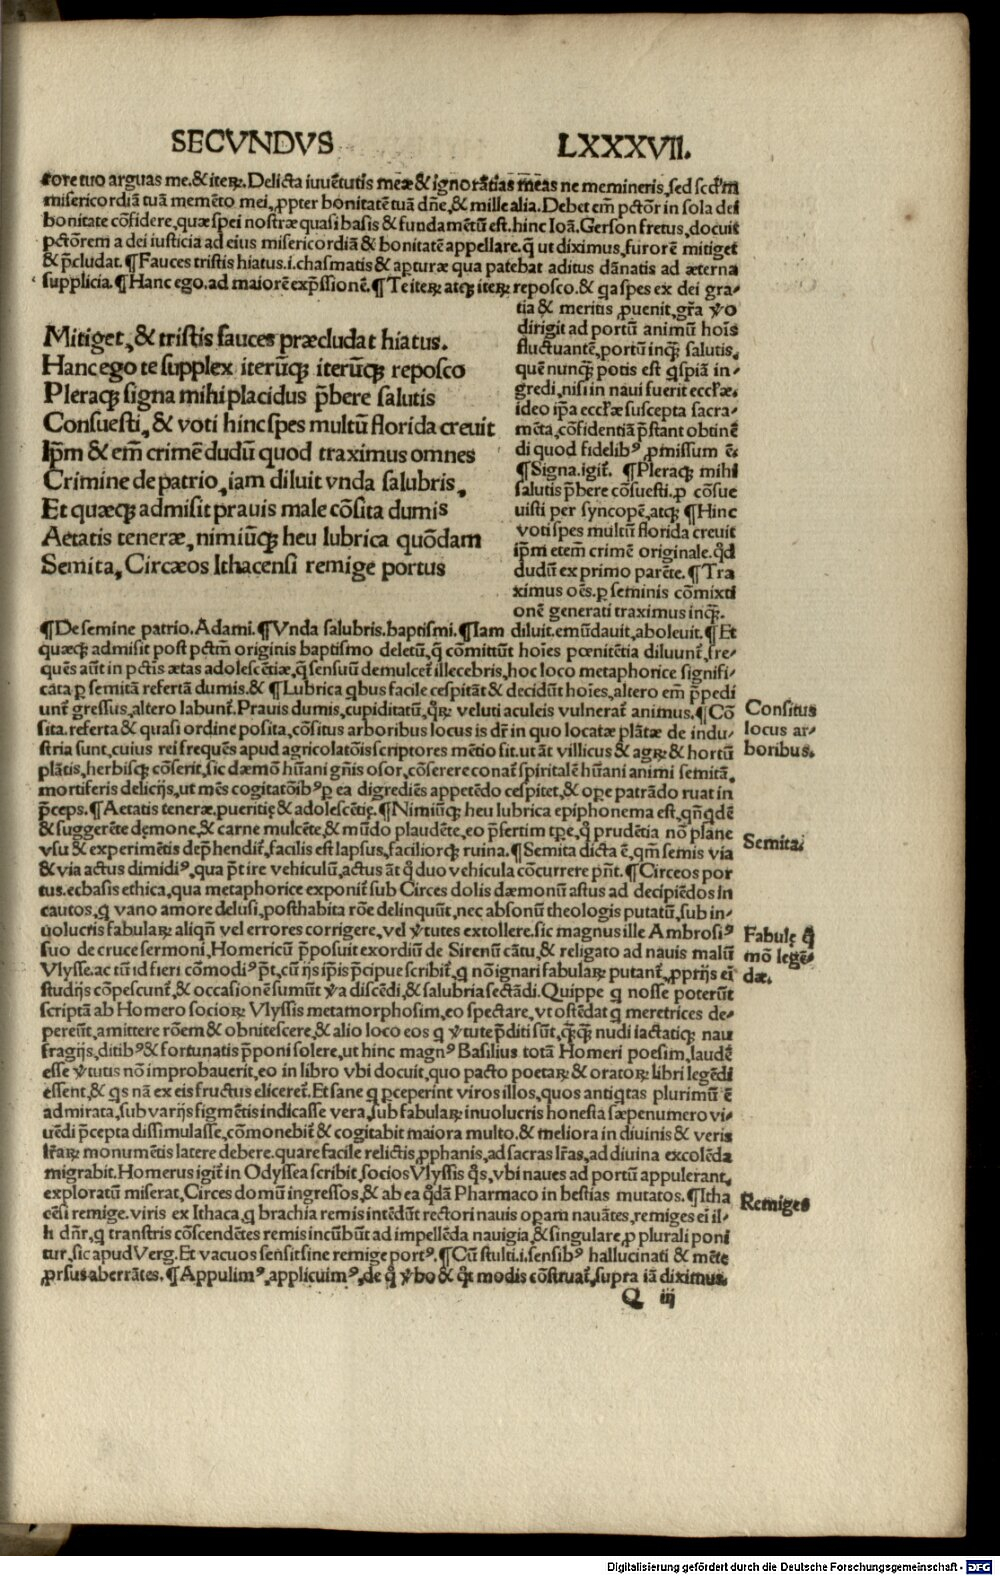 SECVNDVS LXXXVII.
rore tuo arguas me.& iteꝝ.Delicta iuuētutis meæ & ignorātias mēas ne memineris,sed scdꝫ
misericordiā tuā memēto mei,ꝓpter bonitatē tuā dñe,& mille alia.Debet em̄ pctōr in sola dei
bonitate cōfidere,quæ spei nostræ quasi basis & fundamētū est.hinc Ioā.Gerson fretus,docuit
pctōrem a dei iusticia ad eius misericordiā & bonitatē appellare.q̄ ut diximus,furorē mitiget
& p̄cludat.¶Fauces tristis hiatus.i.chasmatis & apturæ qua patebat aditus dānatis ad æterna
supplicia.¶Hanc ego.ad maiorē exp̄ssionē.¶Te iteꝝ atqꝫ iteꝝ reposco.& qa spes ex dei gra-
tia & meritis ꝓuenit,gr̄a ꝟo
dirigit ad portū animū hoīs
fluctuantē,portū inqꝫ salutis,
quē nunqꝫ potis est qspiā in-
gredi,nisi in naui fuerit eccl̄æ.
ideo ip̄a eccl̄æ suscepta sacra-
mēta,cōfidentiā p̄stant obtinē
di quod fidelibꝰ ꝓmissum ē.
¶Signa.igit̄. ¶Pleraqꝫ mihi
salutis p̄bere cōsuesti.ꝓ cōsue
uisti per syncopē,atqꝫ ¶Hinc
voti spes multū florida creuit
ip̄m etem̄ crimē originale.qd̄
dudū ex primo parēte.¶Tra
ximus oēs.ꝑ seminis cōmixti
onē generati traximus inqꝫ.
Mitiget,& tristis fauces præcludat hiatus.
Hanc ego te supplex iterūqꝫ iterūqꝫ reposco
Pleraqꝫ signa mihi placidus p̄bere salutis
Consuesti,& voti hinc spes multū florida creuit
Ip̄m & em̄ crimē dudū quod traximus omnes
Crimine de patrio,iam diluit vnda salubris,
Et quæqꝫ admisit prauis male cōsita dumis
Aetatis teneræ,nimiūqꝫ heu lubrica quōdam
Semita,Circæos Ithacensi remige portus
¶De semine patrio.Adami.¶Vnda salubris.baptismi.¶Iam diluit.emūdauit,aboleuit.¶Et
quæqꝫ admisit post pctm̄ originis baptismo deletū,q̄ cōmittūt hoīes pœnitētia diluunt̄,fre-
quēs aūt in pctīs ætas adolescētiæ,q̄ sensuū demulcet̄ illecebris,hoc loco metaphorice signifi-
cata ꝑ semitā refertā dumis.& ¶Lubrica qbus facile cespitāt & decidūt hoīes,altero em̄ p̄pedi
unt̄ gressus,altero labunt̄.Prauis dumis,cupiditatū,qꝝ veluti aculeis vulnerat̄ animus.¶Cō
sita.referta & quasi ordine posita,cōsitus arboribus locus is dr̄ in quo locatæ plātæ de indu-
stria sunt,cuius rei frequēs apud agricolatōis scriptores mētio fit.ut āt villicus & agꝝ & hortū
plātis,herbisqꝫ cōserit,sic dæmō hūani gn̄is osor,cōserere conat̄ spiritalē hūani animi semitā,
mortiferis delicijs,ut mēs cogitatōibꝰ ꝑ ea digrediēs appetēdo cespitet,& oꝑe patrādo ruat in
p̄ceps.¶Aetatis teneræ.pueritię & adolescētię.¶Nimiūqꝫ heu lubrica epiphonema est,qn̄qdē
& suggerēte dęmone,& carne mulcēte,& mūdo plaudēte,eo p̄sertim tꝑe,q̄ prudētia nō plane
vsu & experimētis dep̄hendit̄,facilis est lapsus,faciliorqꝫ ruina.¶Semita dicta ē,qm̄ semis via
& via actus dimidiꝰ,qua p̄t ire vehiculū,actus āt q̄ duo vehicula cōcurrere pn̄t.¶Circeos por
tus.ecbasis ethica,qua metaphorice exponit̄ sub Circes dolis dæmonū astus ad decipiēdos in
cautos,q vano amore delusi,posthabita rōe delinquūt,nec absonū theologis putatū,sub in-
uolucris fabulaꝝ aliqn̄ vel errores corrigere,vel ꝟtutes extollere.sic magnus ille Ambrosiꝰ
suo de cruce sermoni,Homericū p̄posuit exordiū de Sirenū cātu,& religato ad nauis malū
Vlysse.ac tū id fieri cōmodiꝰ p̄t,cū ijs ip̄is p̄cipue scribit̄,q nō ignari fabulaꝝ putant̄,ꝓprijs eī
studijs cōpescunt̄,& occasionē sumūt ꝟa discēdi,& salubria sectādi.Quippe q nosse poterūt
scriptā ab Homero socioꝝ Vlyssis metamorphosim,eo spectare,vt ostēdat q meretrices de-
pereūt,amittere rōem & obnitescere,& alio loco eos q ꝟtute p̄diti sūt,qꝫqꝫ nudi iactatiqꝫ nau
fragijs,ditibꝰ & fortunatis p̄poni solere,ut hinc magnꝰ Basilius totā Homeri poesim,laudē
esse ꝟtutis nō improbauerit,eo in libro vbi docuit,quo pacto poetaꝝ & oratoꝝ libri legēdi
essent,& qs nā ex eis fructus eliceret̄.Et sane q ꝑceperint viros illos,quos antiqtas plurimū ē
admirata,sub varijs figmētis indicasse vera,sub fabulaꝝ inuolucris honesta sæpenumero vi-
uēdi p̄cepta dissimulasse,cōmonebit̄ & cogitabit maiora multo.& meliora in diuinis & veris
lr̄aꝝ monumētis latere debere.quare facile relictis ꝓphanis,ad sacras lr̄as,ad diuina excolēda
migrabit.Homerus igit̄ in Odyssea scribit,socios Vlyssis qs,vbi naues ad portū appulerant,
exploratū miserat,Circes domū ingressos,& ab ea qdā Pharmaco in bestias mutatos.¶Itha
cēsi remige.viris ex Ithaca,q brachia remis intēdūt rectori nauis oꝑam nauātes,remiges eī il-
li dn̄r,q transtris cōscendētes remis incūbūt ad impellēda nauigia,& singulare,ꝓ plurali poni
tur,sic apud Verg.Et vacuos sensit sine remige portꝰ.¶Cū stulti.i.sensibꝰ hallucinati & mēte
ꝓrsus aberrātes.¶Appulimꝰ,applicuimꝰ,de q̄ ꝟbo & q̄t modis cōstruat̄,supra iā diximus.
Q iij
Consitus
locus ar-
boribus.
Semita.
Fabulę q̄
mō legē-
dæ.
Remiges
Digitalisierung gefördert durch die Deutsche Forschungsgemeinschaft - DFG